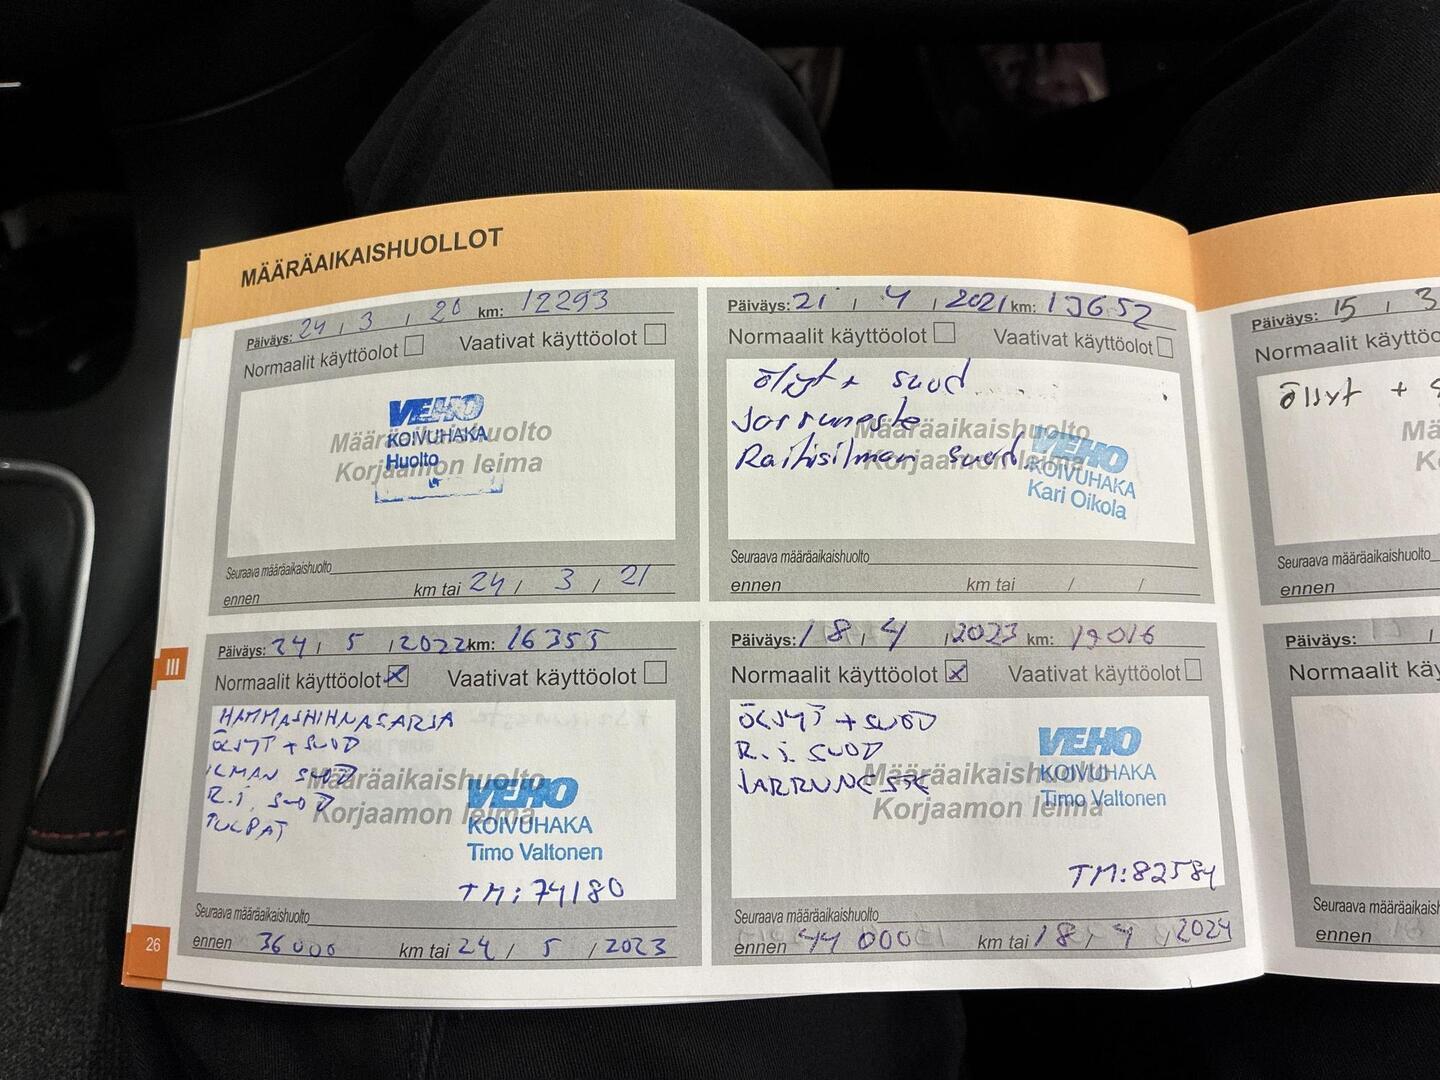 MÄÄRÄAIKAISHUOLLOT
Päiväys: 24 / 3 / 20 km: 12293
Normaalit käyttöolot Vaativat käyttöolot
Määräaikaishuolto
Korjaamon leima
VEHO
KOIVUHAKA
Huolto
Seuraava määräaikaishuolto
ennen km tai 24 / 3 / 21
Päiväys: 21 / 4 / 2021 km: 13652
Normaalit käyttöolot Vaativat käyttöolot
Öljyt + suod
Jarruneste
Raitisilman suod.
Määräaikaishuolto
Korjaamon leima
VEHO
KOIVUHAKA
Kari Oikola
Seuraava määräaikaishuolto
ennen km tai / /
Päiväys: 24 / 5 / 2022 km: 16355
Normaalit käyttöolot Vaativat käyttöolot
HAMMASHIHNASARJA
ÖLJYT + SUOD
ILMAN SUOD
R.I. SUOD
TULPAT
Määräaikaishuolto
Korjaamon leima
VEHO
KOIVUHAKA
Timo Valtonen
TM: 74180
Seuraava määräaikaishuolto
ennen 36000 km tai 24 / 5 / 2023
Päiväys: 18 / 4 / 2023 km: 19016
Normaalit käyttöolot Vaativat käyttöolot
ÖLJYT + SUOD
R.I. SUOD
JARRUNESTE
Määräaikaishuolto
Korjaamon leima
VEHO
KOIVUHAKA
Timo Valtonen
TM: 82584
Seuraava määräaikaishuolto
ennen 44 000 km tai 18 / 4 / 2024
III
26
Päiväys: 15 / 3
Normaalit käyttöo
Öljyt + s
Mä
K
Seuraava määräaikaishuolto
ennen
Päiväys: /
Normaalit käy
Seuraava määräaikaish
ennen